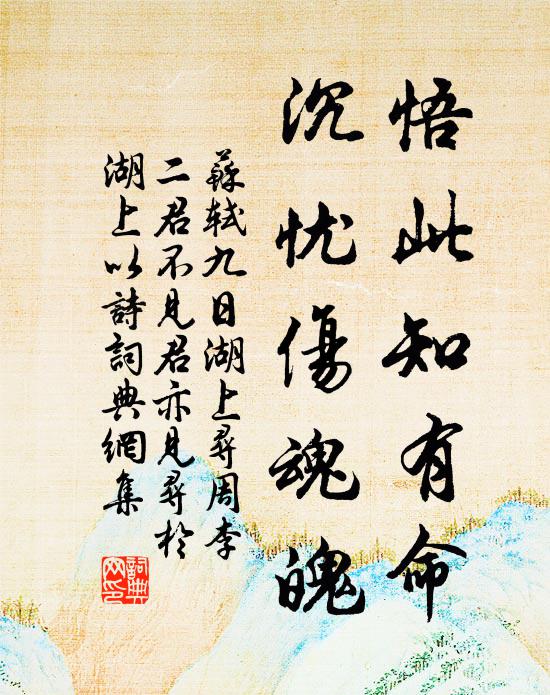 悟此知有命
沉忧傷魂魄
蘇軾九日湖上尋周李
二君不見君亦見尋於
湖上以詩詞典網集
詞典
网印